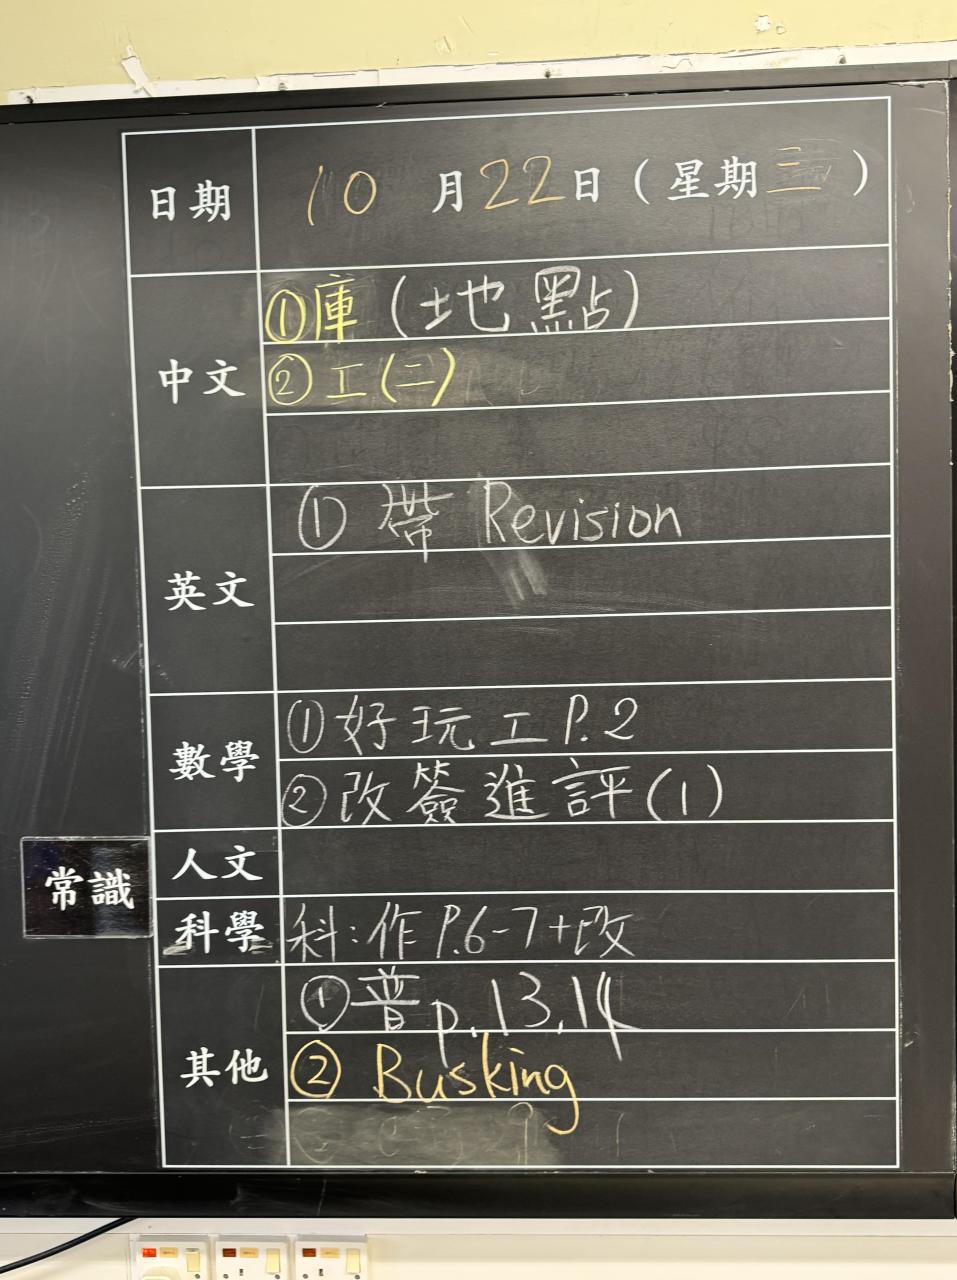 日期 10月22日(星期三)
中文
①庫(地點)
②工(二)
英文
①帶 Revision
數學
①好玩工 P.2
②改簽進評(1)
人文
常識
科學
科:作 P.6-7+改
其他
①普 p.13,14
② Busking